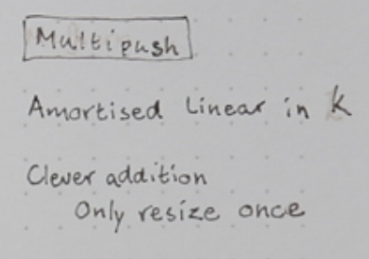 Multipush
Amortised Linear in k
Clever addition
Only resize once